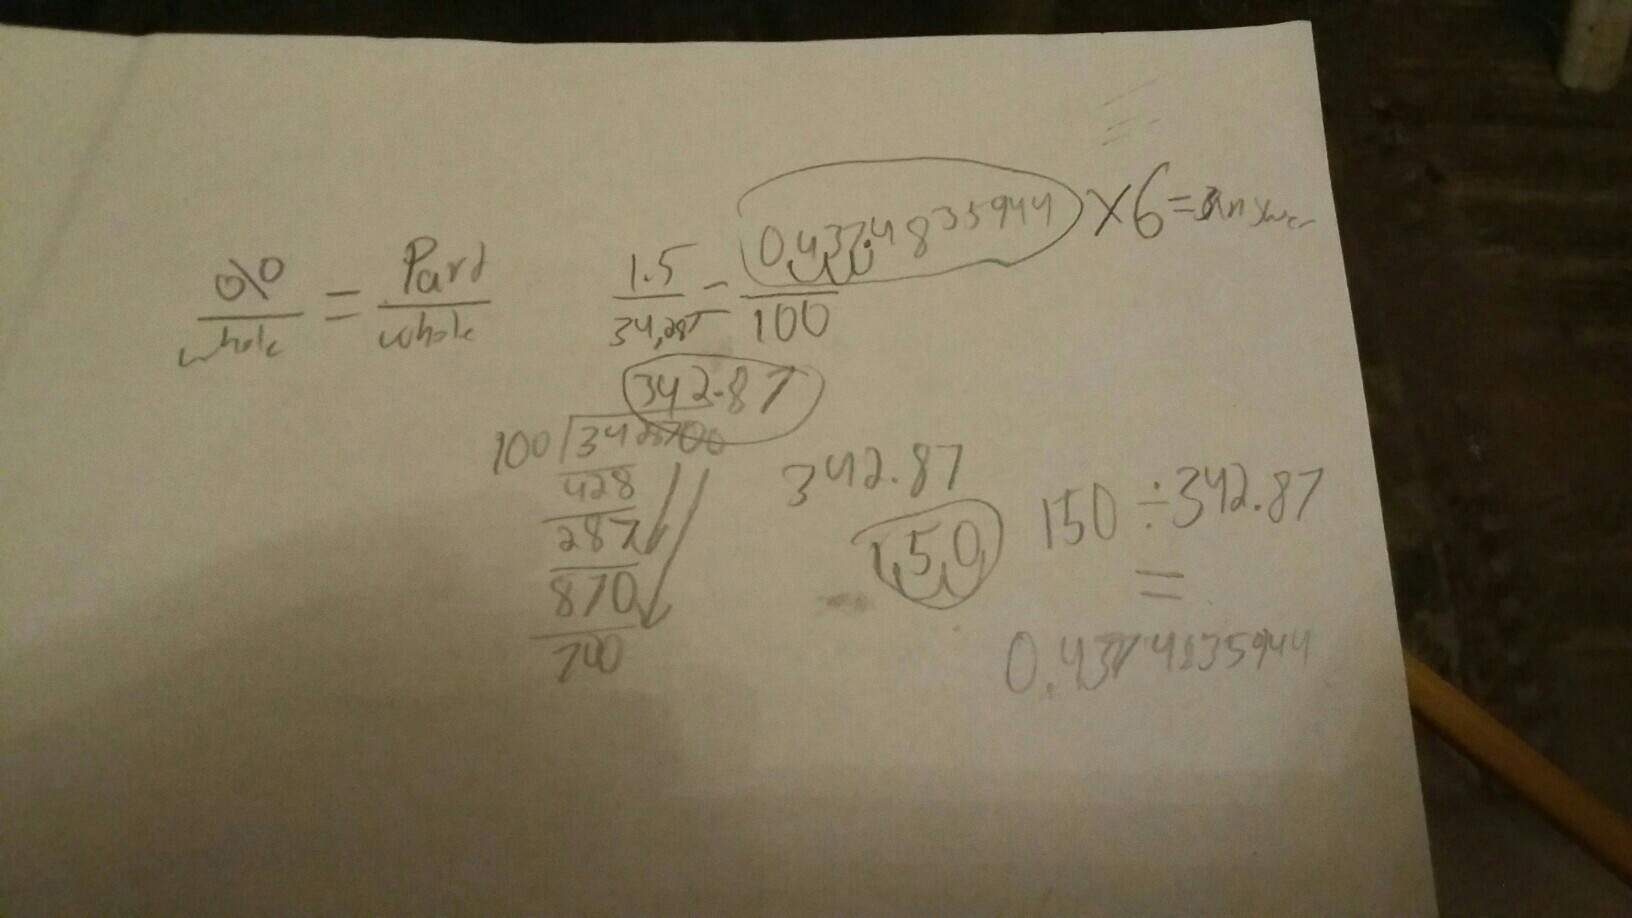 % / whole = Part / whole
1.5 / 34,287 = 0.4374835944 / 100 × 6 = Answer
342.87
100 3428700
428
287
870
700
342.87
150
150 ÷ 342.87
=
0.4374835944